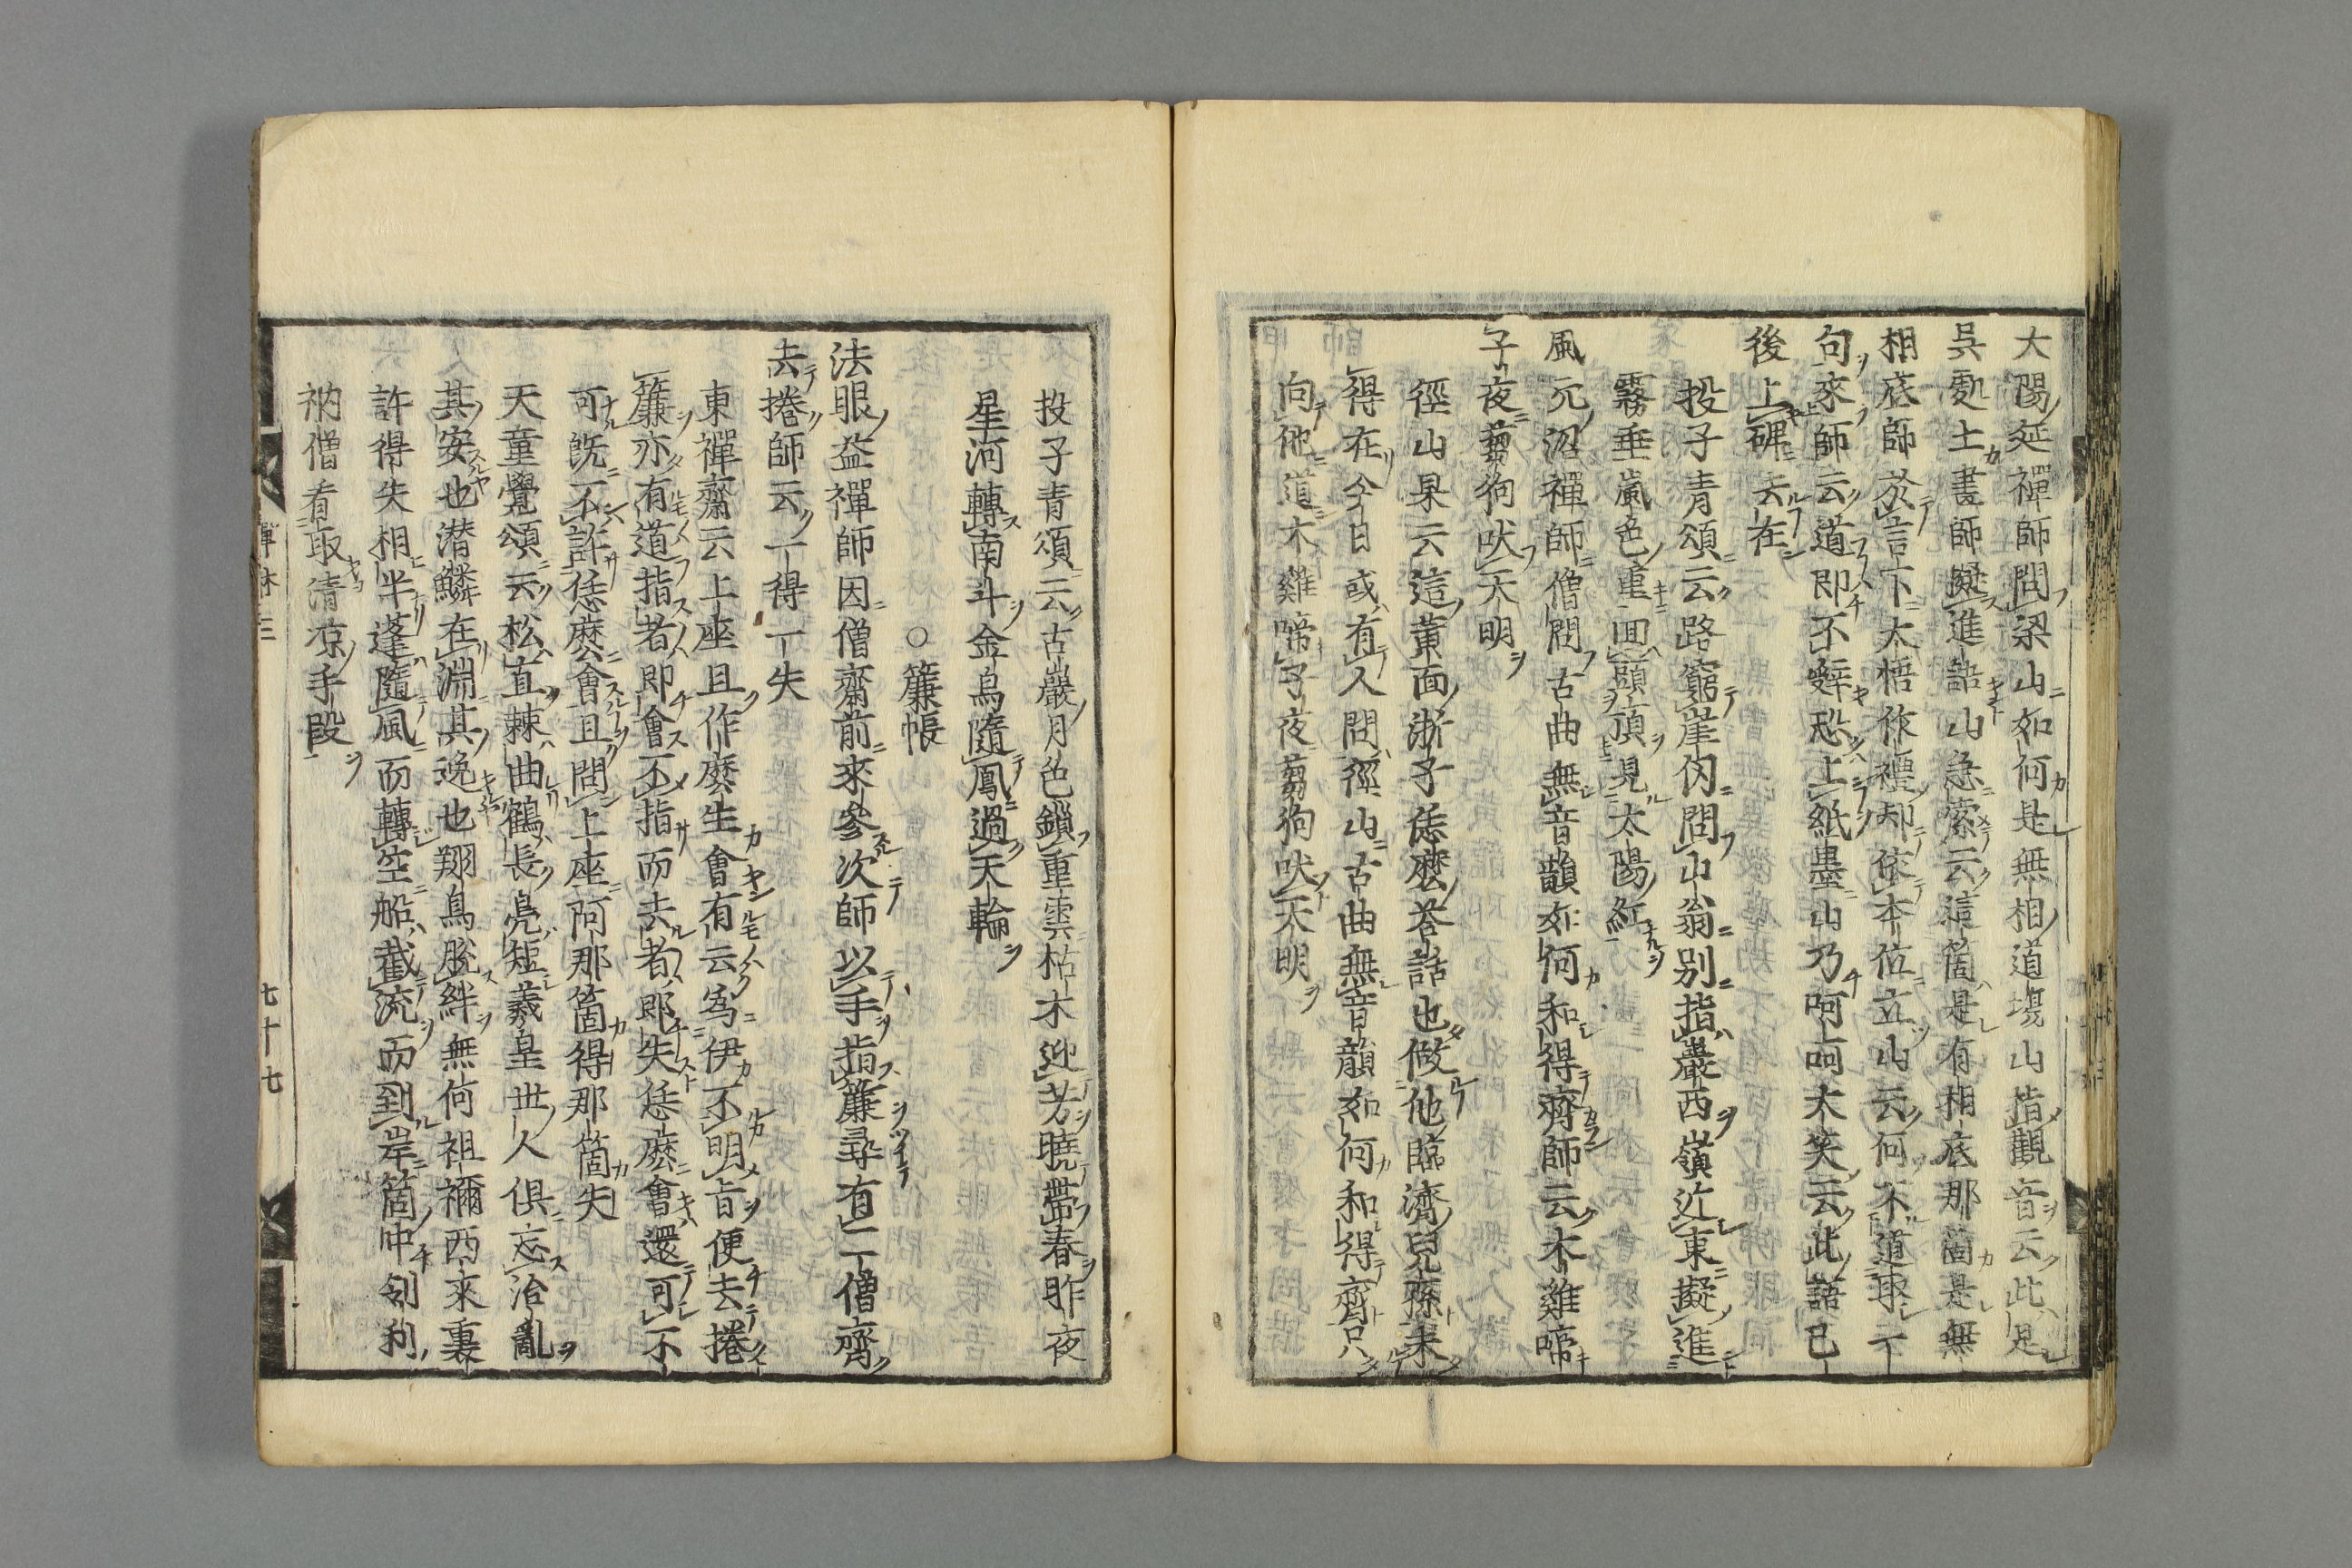 大陽延禪師問梁山如何是無相道塲山指觀音云此是
呉處士畫師擬進語山急索云這箇是有相底那箇是無
相底師於言下大悟作禮却依本位立山云何不道取一
句來師云道即不辭恐上紙墨山乃呵呵大笑云此語已
後上碑去在
投子青頌云路窮崖仞問山翁別指巖西嶺近東擬進
霧垂嵐色重回頭頂見太陽紅
風元沼禪師僧問古曲無音韻如何和得齊師云木雞啼
子夜蒭狗吠天明
徑山杲云這黃面浙子恁麼荅話也做他臨濟兒孫未
得在今日或有人問徑山古曲無音韻如何和得齊只
向他道木雞啼子夜蒭狗吠天明
投子青頌云古巖月色鎖重雲枯木迎芳曉帶春昨夜
星河轉南斗金烏隨鳳過天輪
○簾帳
法眼益禪師因僧齋前來參次師以手指簾尋有二僧齊
去捲師云一得一失
東禪齋云上座且作麼生會有云爲伊不明旨便去捲
簾亦有道指者即會不指而去者即失恁麼會還可不
可既不許恁麼會且問上座阿那箇得那箇失
天童覺頌云松直棘曲鶴長鳧短羲皇世人俱忘治亂
其安也潛鱗在淵其逸也翔鳥脫絆無何祖禰西來裏
許得失相半蓬隨風而轉空船截流而到岸箇中伶利
衲僧看取清凉手段
禪林三
七十七